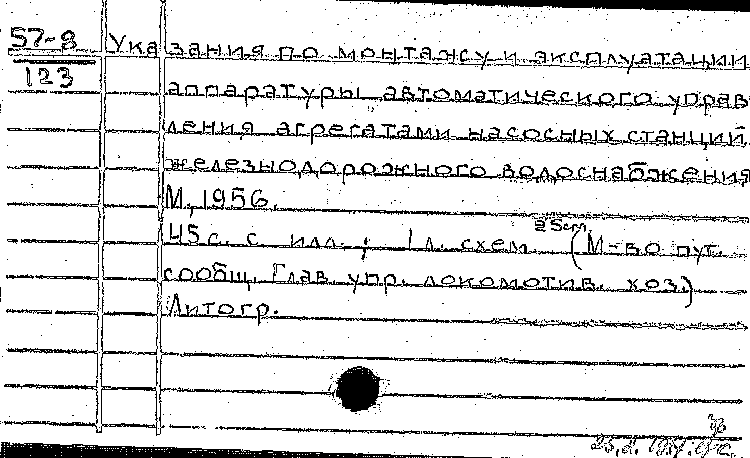 57-8
123
Указания по монтажу и эксплуатации
аппаратуры автоматического управ
ления агрегатами насосных станций
железнодорожного водоснабжения
М, 1956.
45 с. с илл.; 1 л. схем. (М-во пут.
сообщ. Глав. упр. локомотив. хоз.)
Литогр.